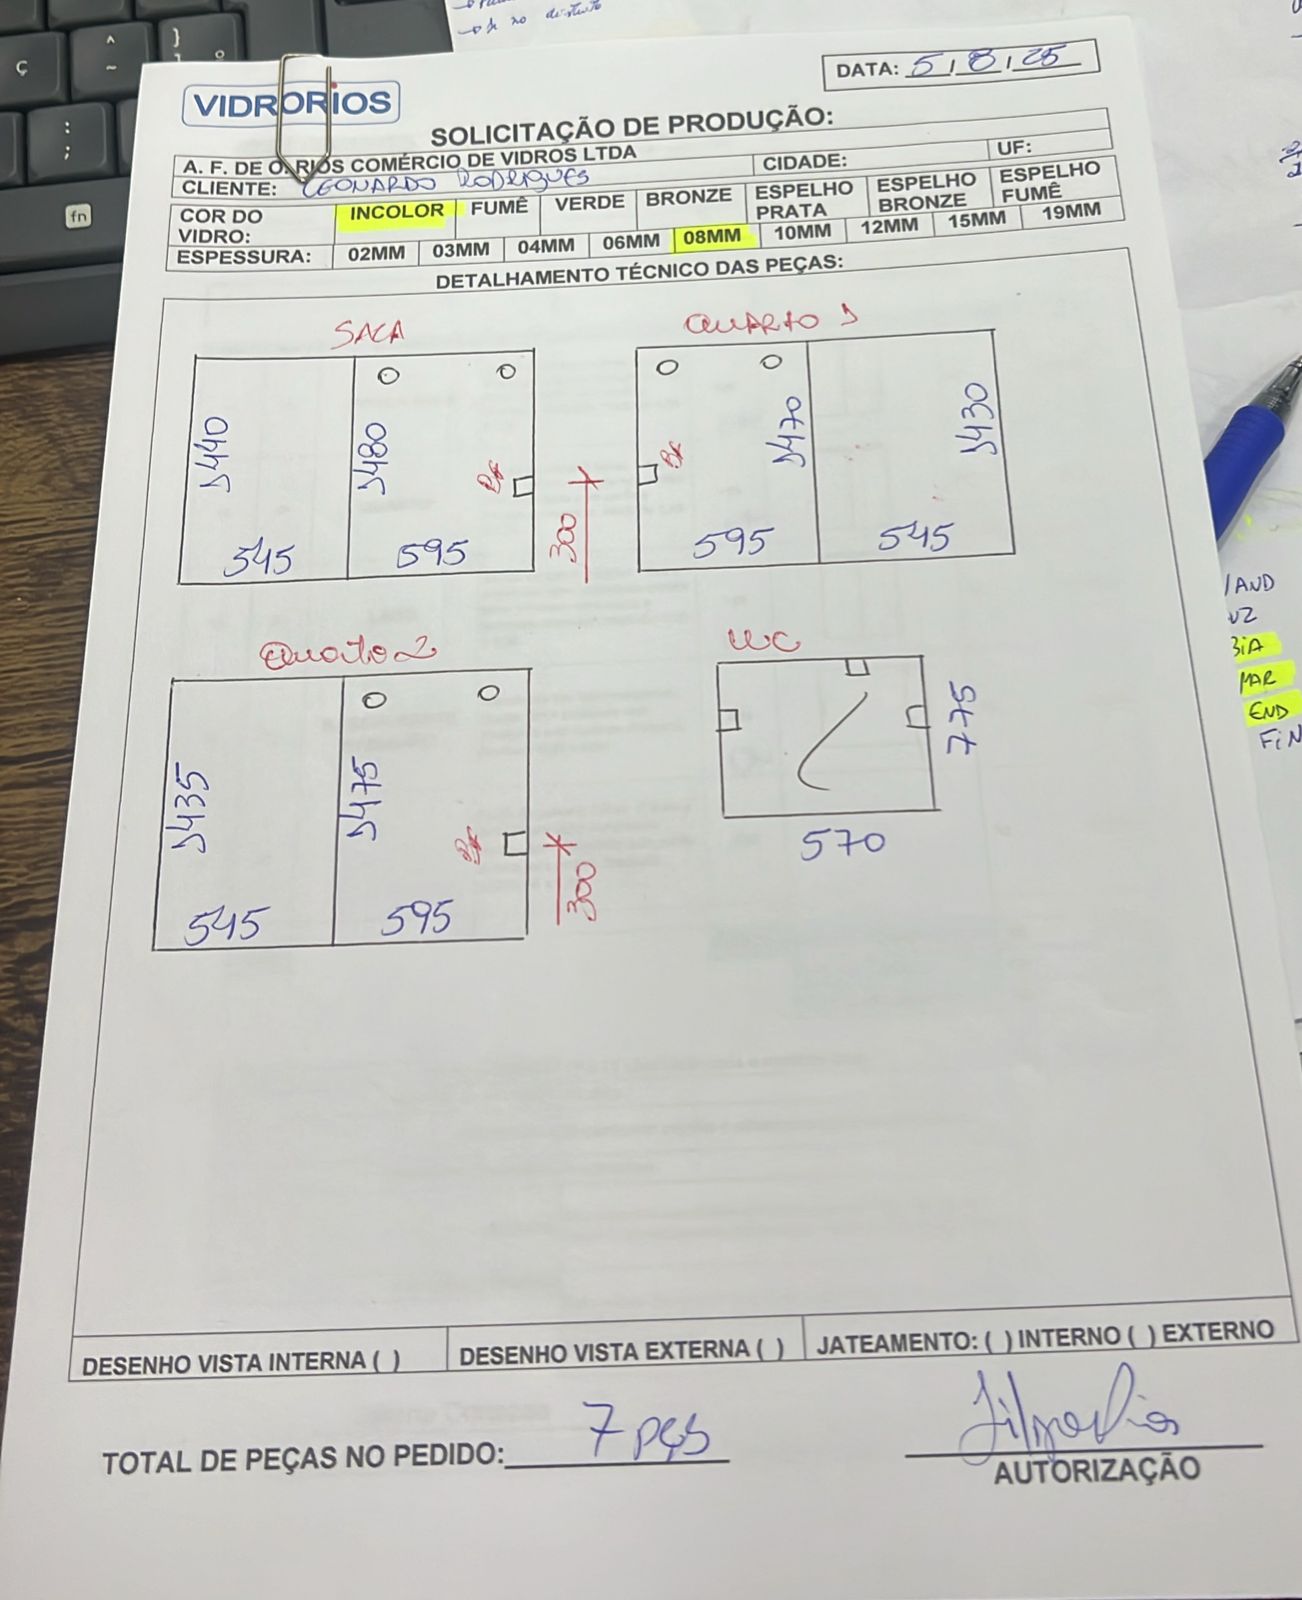 DATA: 5/8/25
VIDRORIOS
SOLICITAÇÃO DE PRODUÇÃO:
A. F. DE O. RIOS COMÉRCIO DE VIDROS LTDA CIDADE: UF:
CLIENTE: LEONARDO RODRIGUES
COR DO VIDRO: INCOLOR FUMÊ VERDE BRONZE ESPELHO PRATA ESPELHO BRONZE ESPELHO FUMÊ
ESPESSURA: 02MM 03MM 04MM 06MM 08MM 10MM 12MM 15MM 19MM
DETALHAMENTO TÉCNICO DAS PEÇAS:
SALA
1440
1480
545
595
300
QUARTO 1
1470
1430
595
545
Quarto 2
1435
1475
545
595
300
WC
775
570
DESENHO VISTA INTERNA ( ) DESENHO VISTA EXTERNA ( ) JATEAMENTO: ( ) INTERNO ( ) EXTERNO
TOTAL DE PEÇAS NO PEDIDO: 7 pçs
AUTORIZAÇÃO
fn
Ç
MAR
END